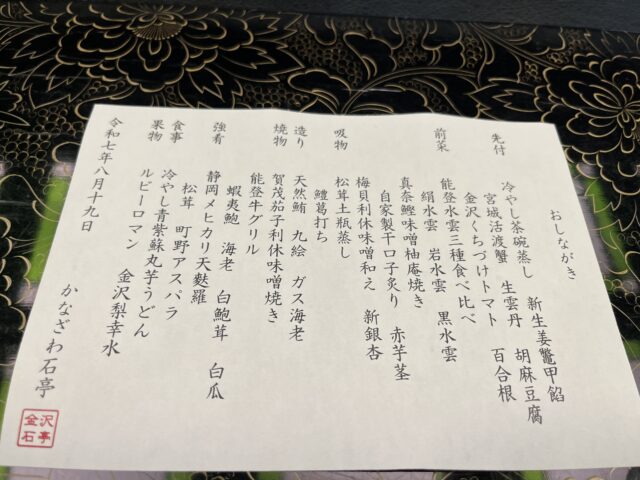 おしながき
先付
冷やし茶碗蒸し 新生姜鼈甲餡
宮城活渡蟹 生雲丹 胡麻豆腐
金沢くちづけトマト 百合根
前菜
能登水雲三種食べ比べ
絹水雲 岩水雲 黒水雲
真奈鰹味噌柚庵焼き
自家製干口子炙り 赤芋茎
梅貝利休味噌和え 新銀杏
吸物
松茸土瓶蒸し
鱧葛打ち
造り
天然鮪 九絵 ガス海老
焼物
賀茂茄子利休味噌焼き
能登牛グリル
強肴
蝦夷鮑 海老 白鮑茸 白瓜
静岡メヒカリ天麩羅
松茸 町野アスパラ
食事
冷やし青紫蘇丸芋うどん
果物
ルビーロマン 金沢梨幸水
令和七年八月十九日
かなざわ石亭
金沢石亭